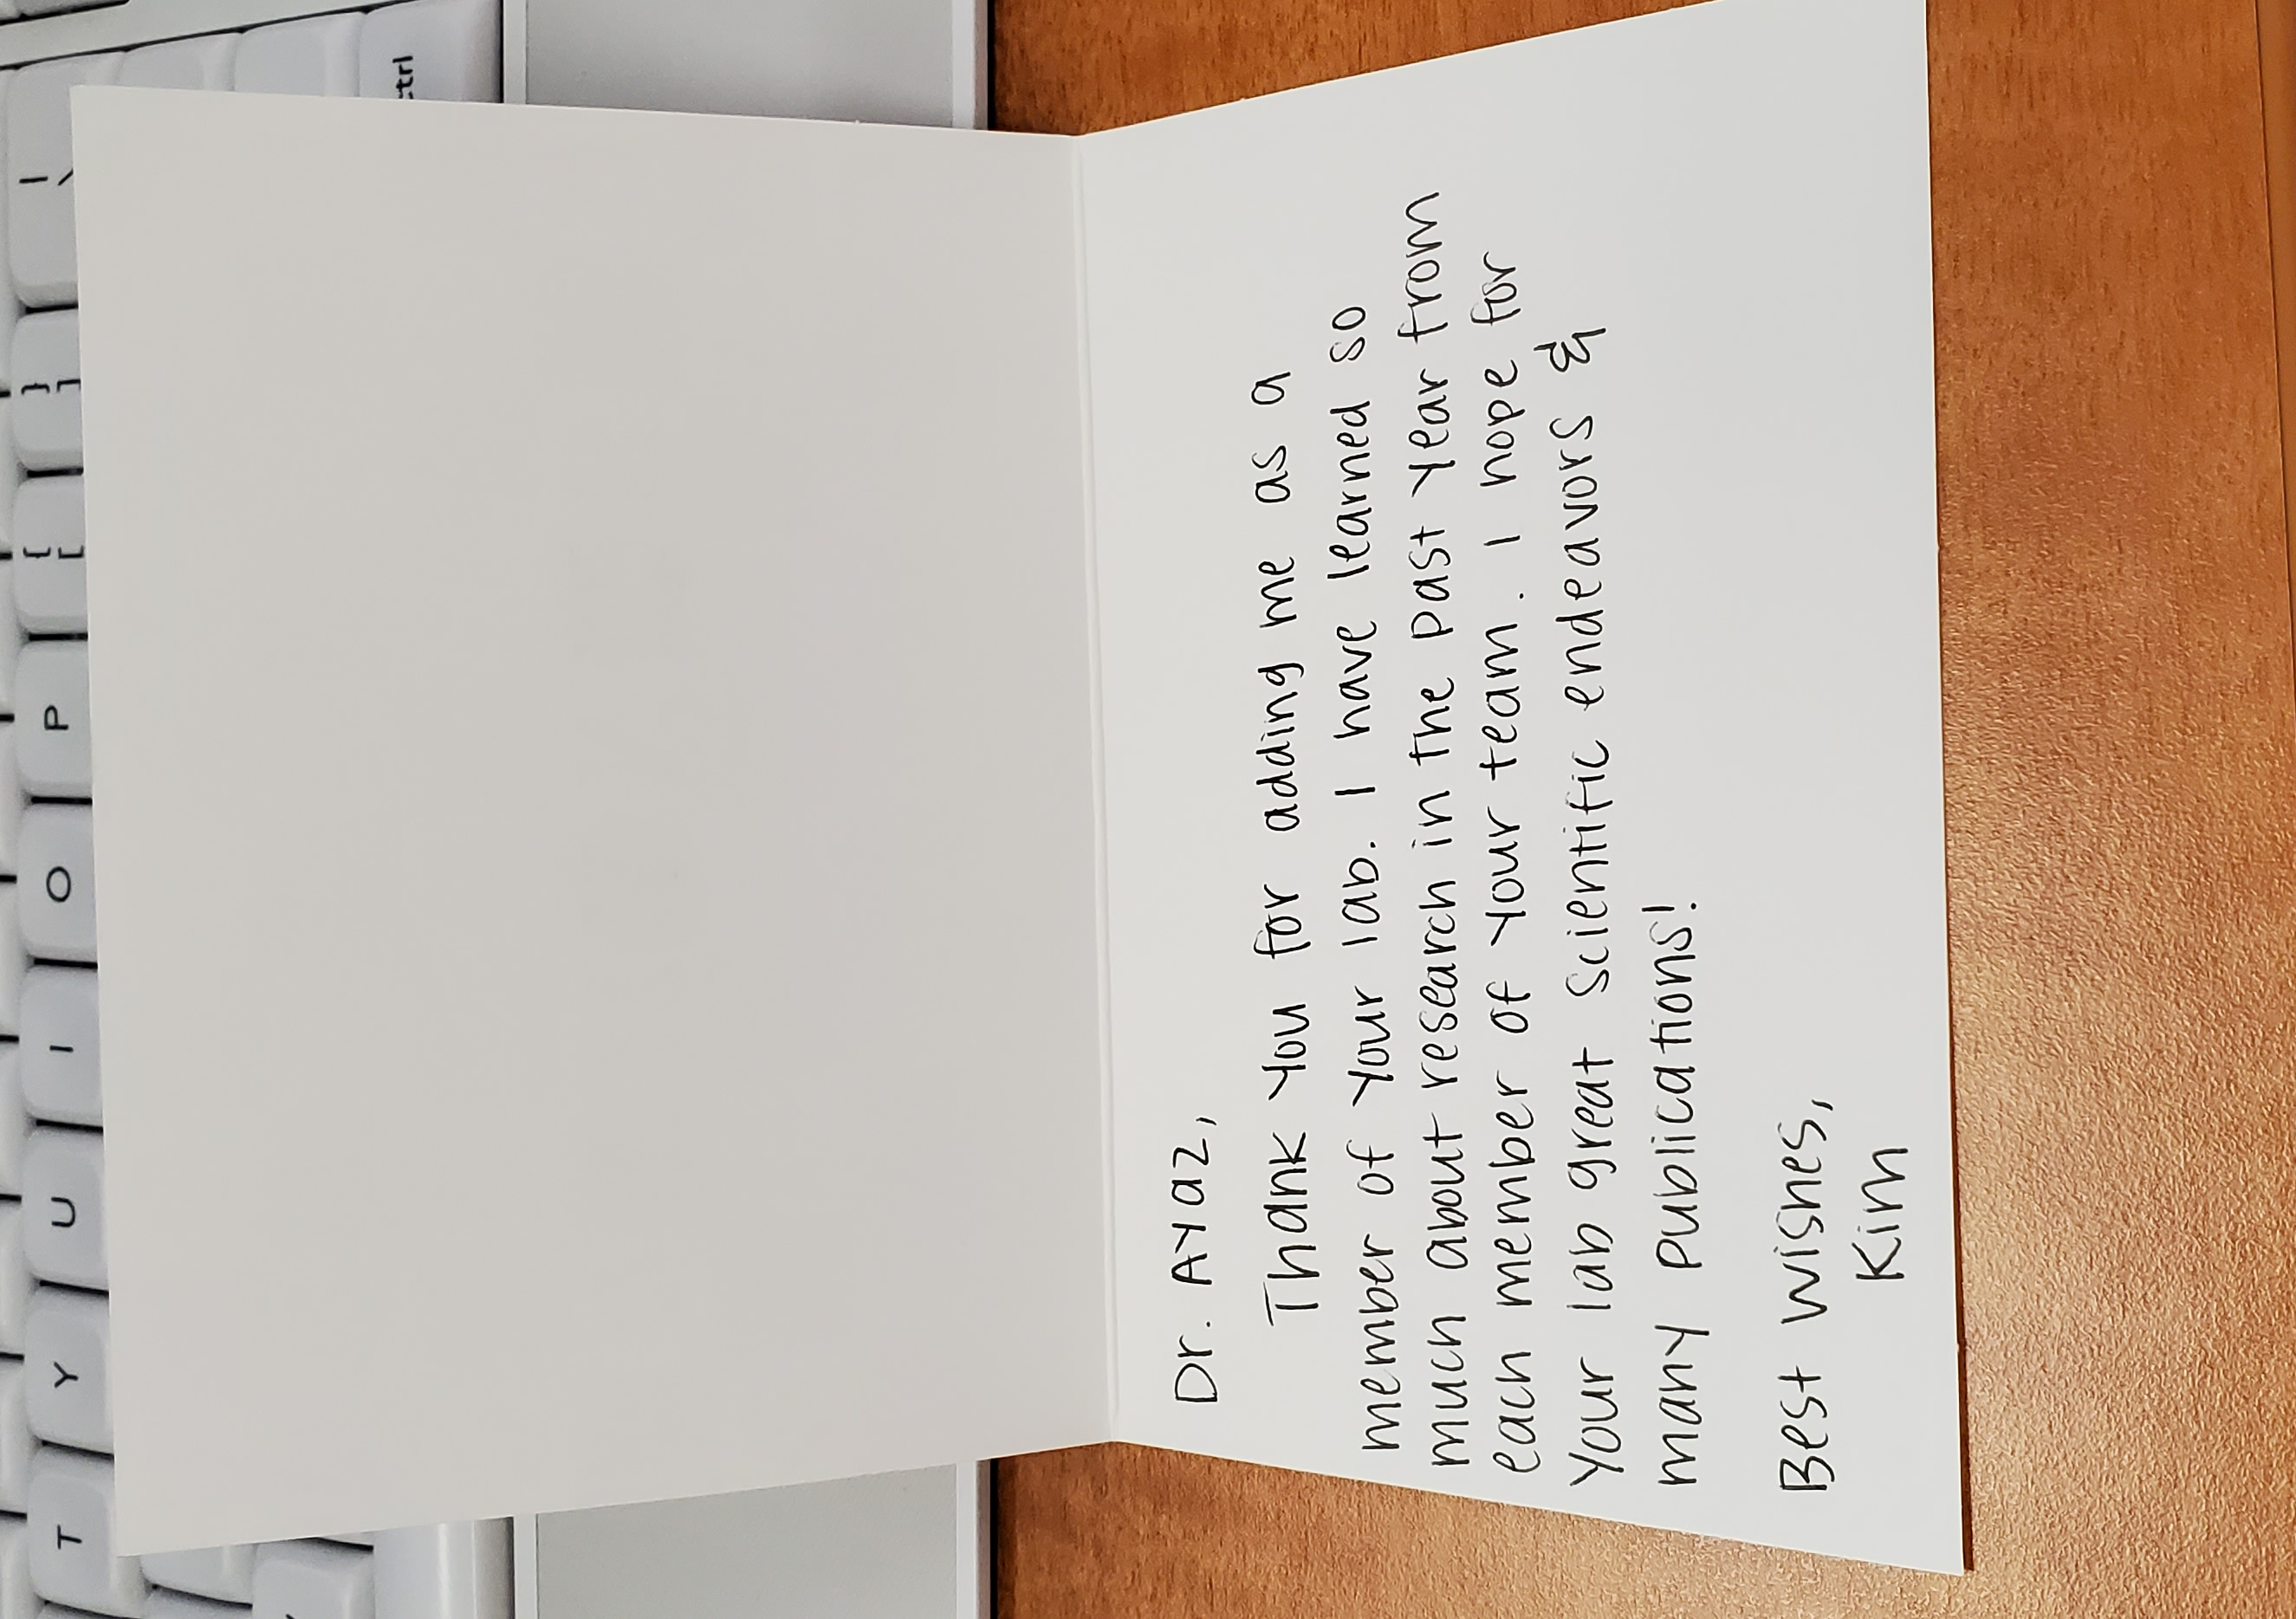 ctrl
|
\
}
]
{
[
P
O
I
U
Y
T
Dr. Ayaz,
Thank you for adding me as a
member of your lab. I have learned so
much about research in the past year from
each member of your team. I hope for
your lab great scientific endeavors &
many publications!
Best wishes,
Kim